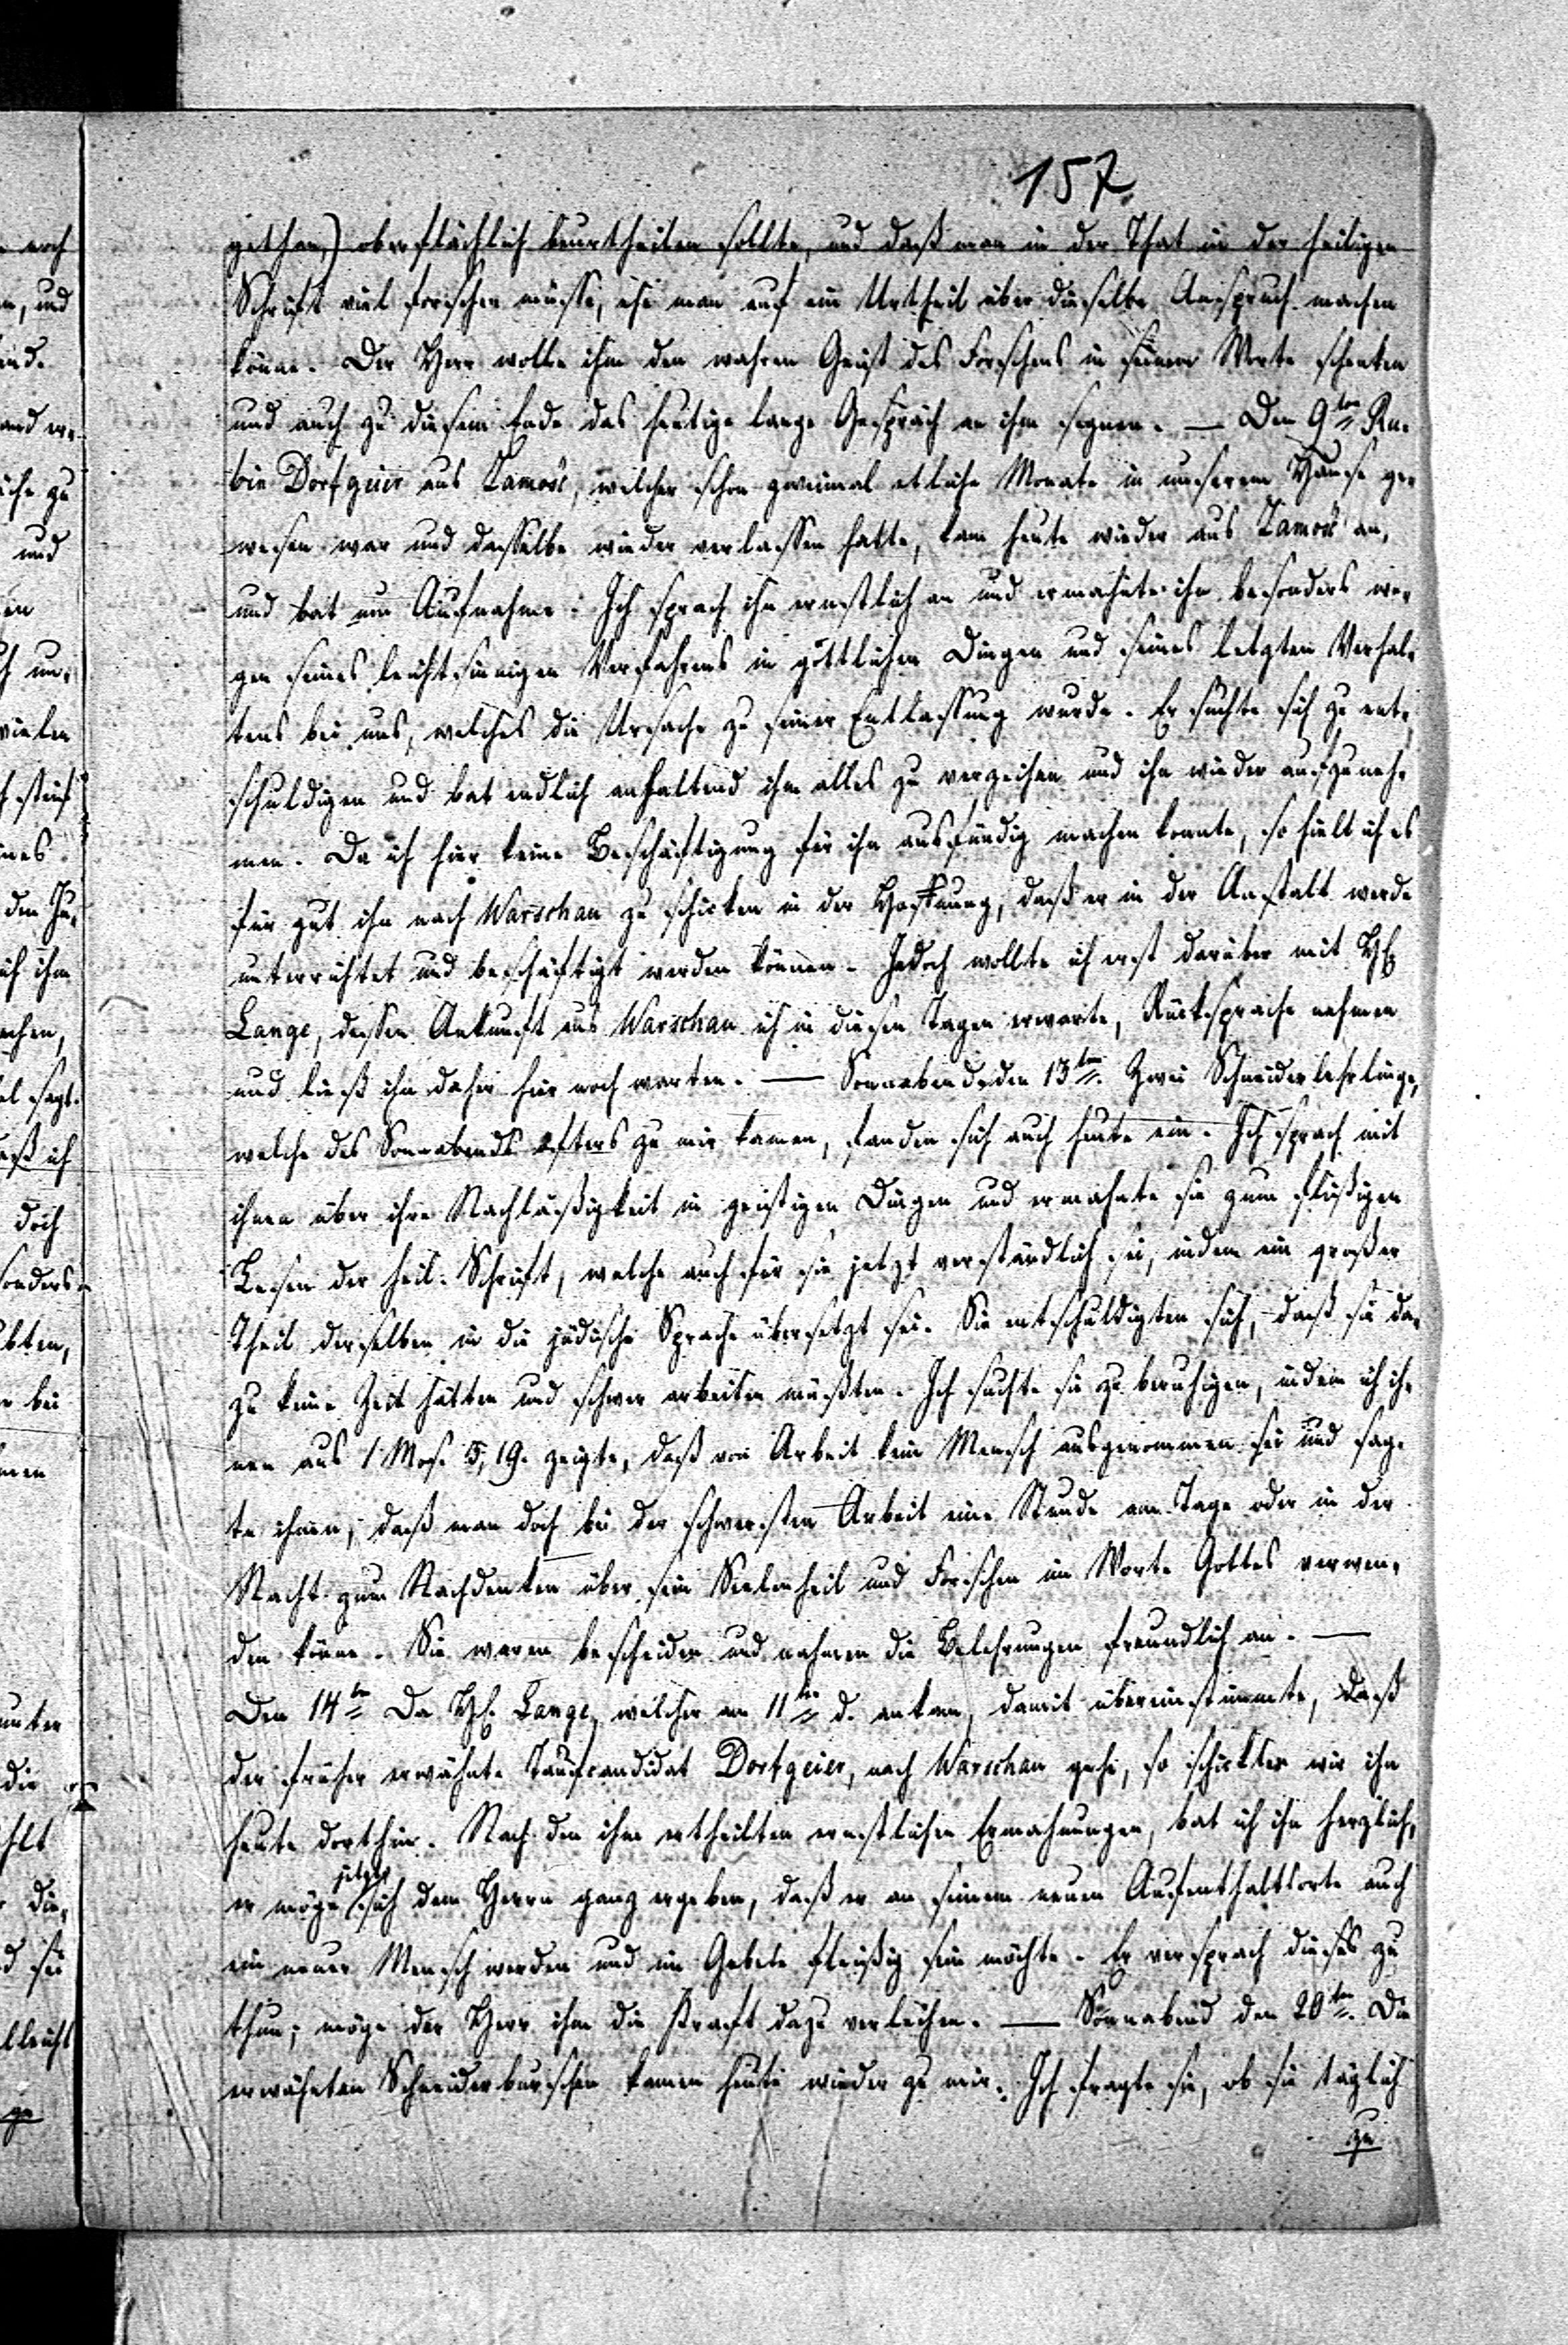 157.
gethan,) oberflächlich beurtheilen sollte, und daß man in der That in der heiligen
Schrift viel forschen müsse, ehe man auf ein Urtheil über dieselbe Anspruch machen
könne. Der Herr wolle ihm den wahren Geist des Forschens in seinem Worte schenken
und auch zu diesem Ende das heutige lange Gespräch an ihm segnen. — Den 9ten Ru-
bin Dorfgeier aus Zamość, welcher schon zweimal etliche Monate in unserem Hause ge-
wesen war und dasselbe wieder verlassen hatte, kam heute wieder aus Zamość an,
und bat um Aufnahme. Ich sprach ihn ernstlich an und ermahnte ihn besonders we-
gen seines leichtsinnigen Verfahrens in göttlichen Dingen und seines letzten Verhal-
tens bei uns, welches die Ursache zu seiner Entlassung wurde. Er suchte sich zu ent-
schuldigen und bat endlich anhaltend ihm alles zu verzeihen und ihn wieder aufzuneh-
men. Da ich hier keine Beschäftigung für ihn ausfündig machen konnte, so hielt ich es
für gut ihn nach Warschau zu schicken in der Hoffnung, daß er in der Anstalt werde
unterrichtet und beschäftigt werden können. Jedoch wollte ich erst darüber mit H.
Lange, dessen Ankunft aus Warschau ich in diesen Tagen erwarte, Rücksprache nehmen
und ließ ihn daher hier noch warten. — Sonnabend, den 13ten. Zwei Schneiderlehrlinge,
welche des Sonnabends öfters zu mir kamen, fanden sich auch heute ein. Ich sprach mit
ihnen über ihre Nachläßigkeit in geistigen Dingen und ermahnte sie zum fleißigen
Lesen der heil. Schrift, welche auch für sie jetzt verständlich sei, indem ein großer
Theil derselben in die jüdische Sprache übersetzt sei. Sie entschuldigten sich, daß sie da-
zu keine Zeit hätten und schwer arbeiten müßten. Ich suchte sie zu beruhigen, indem ich ih-
nen aus 1 Mos. 3, 19. zeigte, daß von Arbeit kein Mensch ausgenommen sei und sag-
te ihnen, daß man doch bei der schwersten Arbeit eine Stunde am Tage oder in der
Nacht zum Nachdenken über sein Seelenheil und Forschen im Worte Gottes verwen-
den könne. Sie waren bescheiden und nahmen die Belehrungen freundlich an. —
Den 14ten Da H. Lange, welcher am 11ten d. ankam, damit übereinstimmte, daß
der früher erwähnte Taufcandidat Dorfgeier, nach Warschau gehe, so schickten wir ihn
heute dorthin. Nach den ihm ertheilten ernstlichen Ermahnungen, bat ich ihn herzlich,
er möge jetzt sich dem Herrn ganz ergeben, daß er an seinem neuen Aufenthaltsorte auch
ein neuer Mensch werden und im Gebete fleißig sein möchte. Er versprach dieses zu
thun; möge der Herr ihm die Kraft dazu verleihen. — Sonnabend den 20ten. Die
erwähnten Schneiderburschen kamen heute wieder zu mir. Ich fragte sie, ob sie täglich
zu